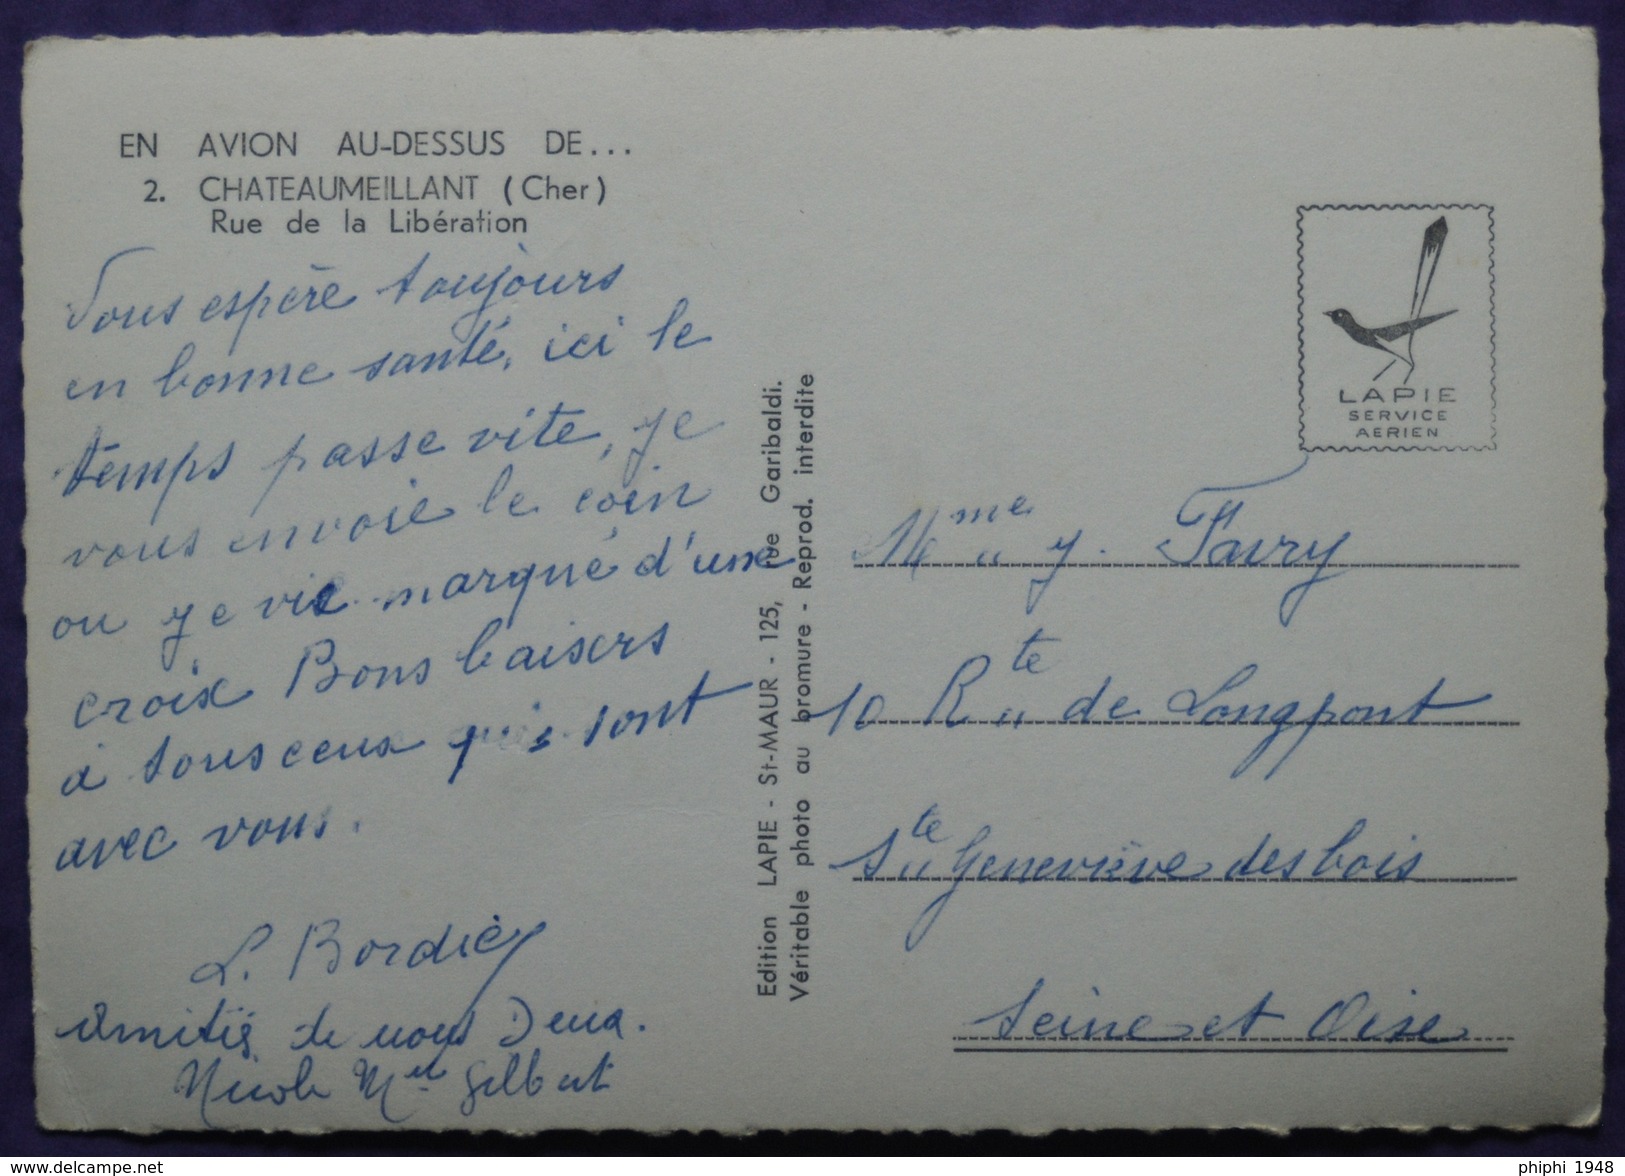 EN AVION AU-DESSUS DE...
2. CHATEAUMEILLANT (Cher)
Rue de la Libération
Vous espère toujours
en bonne santé, ici le
temps passe vite, je
vous envoie le coin
ou je vis marqué d'une
croix Bons baisers
à tous ceux qui sont
avec vous.
L. Bordier
Amitiés de nous Deux.
Nicole Gilbert
Edition LAPIE - St-MAUR - 125, rue Garibaldi.
Véritable photo au bromure - Reprod. interdite
LAPIE
SERVICE
AERIEN
Mme Y. Favry
10 Rte de Longpont
Ste Geneviève des bois
Seine et Oise
phiphi 1948